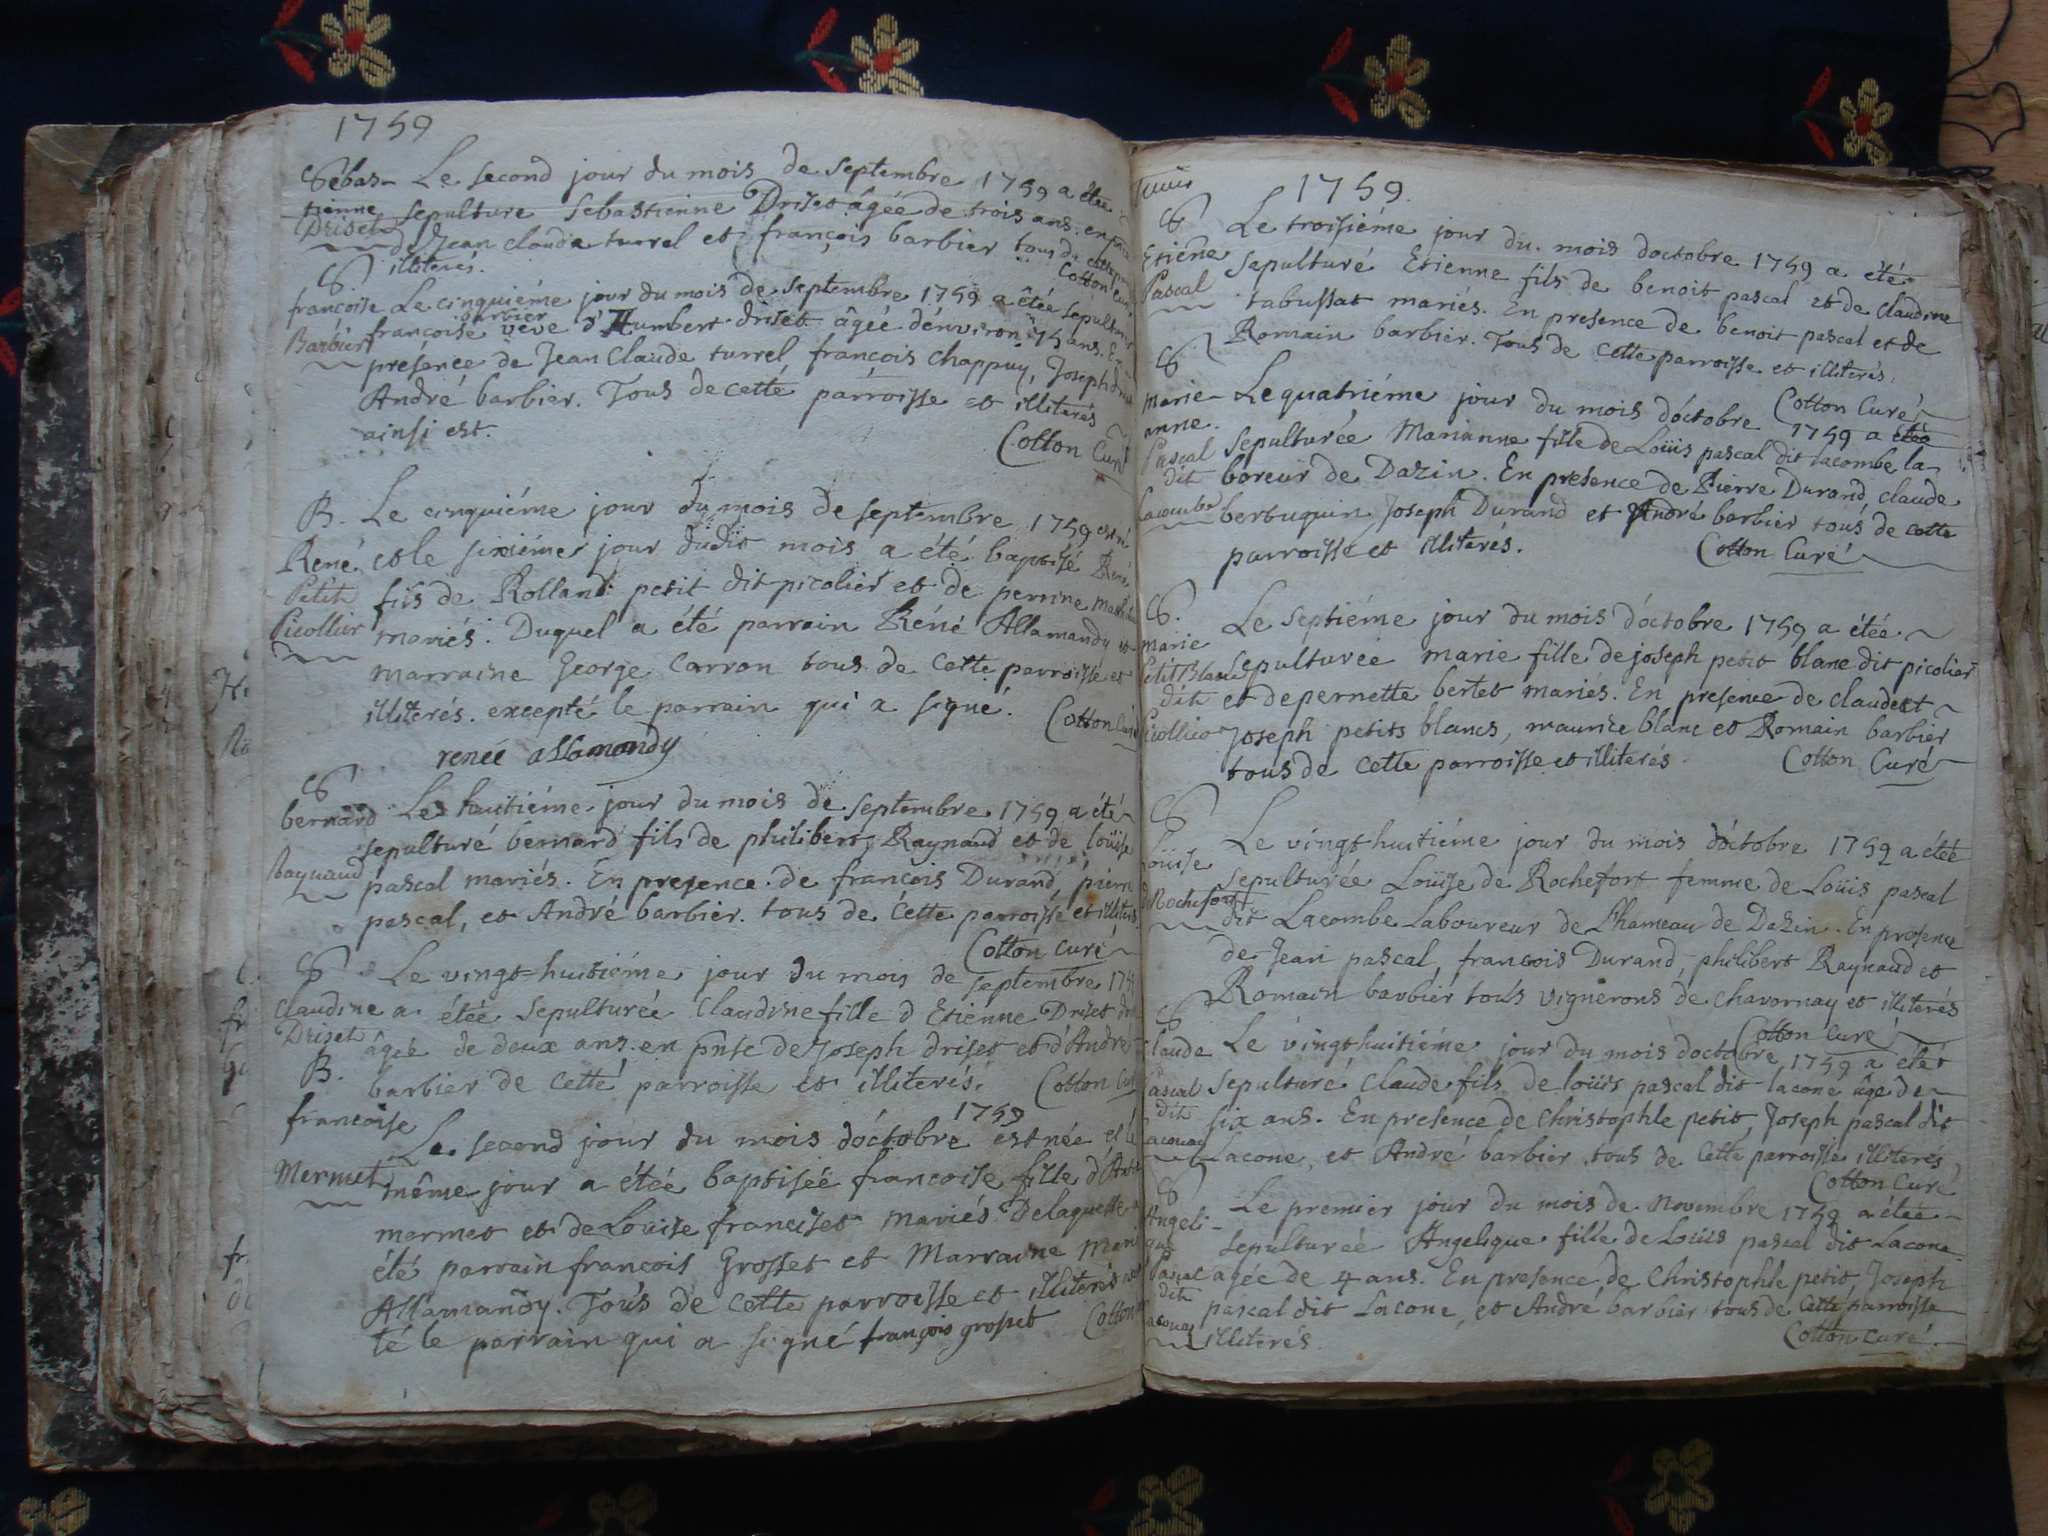 1759
Sébas- Le second jour du mois de septembre 1759 a étée
tienne sepulture Sebastienne Driset âgée de trois ans. en
Driset de Jean claude turrel et françois barbier tous de
illiterés.
Cotton
S
françoise Le cinquiéme jour du mois de septembre 1759 a étée
barbier
Barbier françoise veve d'Humbert driset âgée d'environ 75 ans. En
présence de Jean Claude turrel françois chappuy, Joseph
André barbier. Tous de cette parroisse et illiterés
ainsi est.
Cotton Curé
B. Le cinquiéme jour du mois de septembre 1759 est né
René et le sixiéme jour dudit mois a été baptisé René
Petit fils de Rolland petit dit picolier et de perrine
Picollier mariés. Duquel a été parrain Réné Allamandy et
marraine George Carron tous de cette parroisse et
illiterés. excepté le parrain qui a signé. Cotton Curé
renée allamandy
S
bernard Le huitiéme jour du mois de septembre 1759 a été
sepulturé bernard fils de philibert Raynaud et de loüise
Raynaud pascal mariés. En presence de françois Durand, pierre
pascal, et André barbier. tous de cette parroisse et illiterés.
Cotton curé
S Le vingt=huitiéme jour du mois de septembre
Claudine a étée sepulturée Claudine fille d'Etienne Driset
Driset âgée de deux ans. en pnse de Joseph driset et d'André
B. barbier de cette parroisse et illiterés. Cotton
1759
françoise Le second jour du mois d'octobre est née et le
Mermet même jour a étée baptisée françoise fille
mermet et de Louise franciset mariés. Delaquelle a
été parrain françois Grosset et Marraine
Allamandy. Tous de cette parroisse et illiterés
té le parrain qui a signé françois grosset Cotton
1759.
S Le troisiéme jour du mois doctobre 1759 a été
Etiene sepulturé Etienne fils de benoit pascal et de claudine
Pascal tabussat mariés. En presence de benoit pascal et de
Romain barbier. Tous de cette parroisse et illiterés.
S Cotton Curé
Marie- Le quatriéme jour du mois d'octobre 1759 a étée
anne.
Pascal sepulturée Marianne fille de Loüis pascal dit lacombe la-
dit boreur de Dazin. En presence de Pierre Durand, claude
Lacombe berbuquin Joseph Durand et André barbier tous de cette
parroisse et illiterés. Cotton Curé
S.
Marie Le septiéme jour du mois d'octobre 1759 a étée
Petit Blanc sepulturée marie fille de joseph petit blanc dit picolier
dit et de pernette bertet mariés. En presence de claude et
Joseph petits blancs, maurice blanc et Romain barbier
tous de cette parroisse et illiterés. Cotton Curé
S
Le vingt huitiéme jour du mois d'octobre 1759 a étée
Loüise sepulturée Loüise de Rochefort femme de Loüis pascal
de Rochefort dit Lacombe Laboureur de l'hameau de Dazin. En presence
de Jean pascal, francois Durand, philibert Raynaud et
Romain barbier tous vignerons de chavornay et illiterés
Cotton Curé
S
Claude Le vingt huitiéme jour du mois doctobre 1759 a étét
Pascal sepulturé claude fils de loüis pascal dit lacone âgé de
dit six ans. En presence de christophle petit, Joseph pascal dit
Lacone, et André barbier tous de cette parroisse illiterés
Cotton Curé
S
Angeli- Le premier jour du mois de novembre 1759 a étée
que sepulturée Angelique fille de Loüis pascal dit Lacone
Pascal agée de 4 ans. En presence de christophle petit, Joseph
dit pascal dit Lacone, et André barbier tous de cette parroisse
illiterés. Cotton curé.